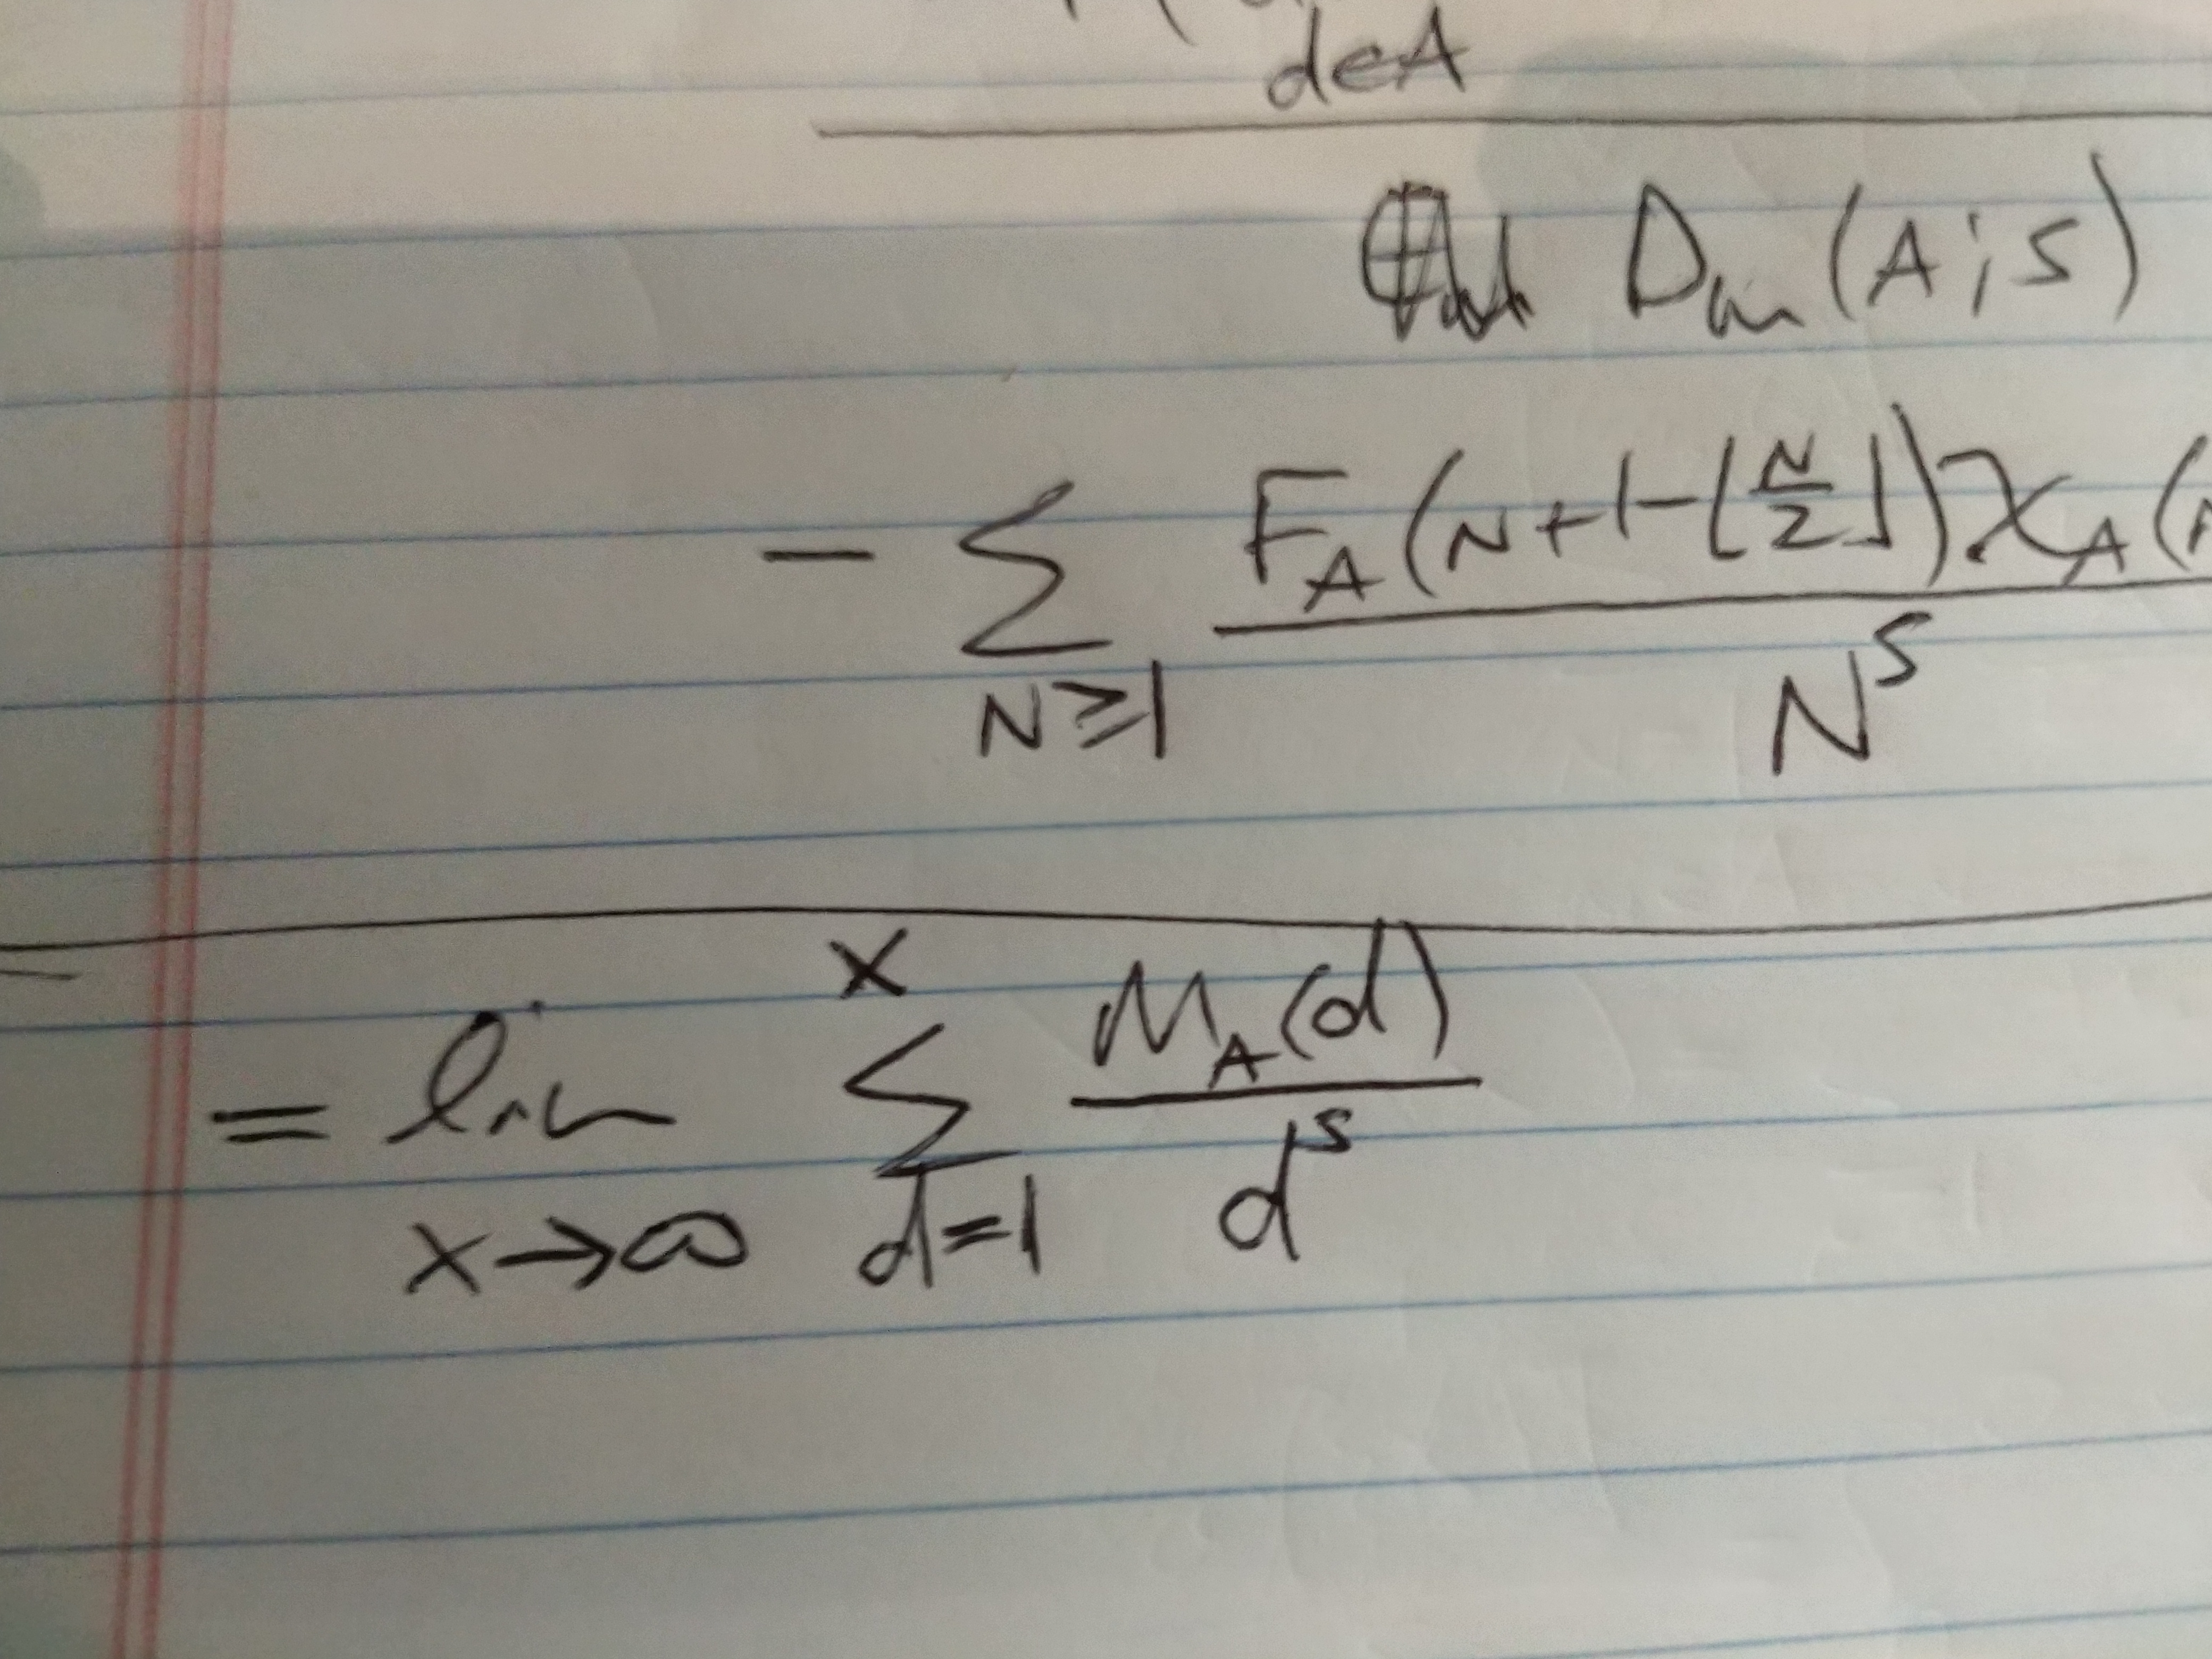 d∈A
D_m(A;s)
− ∑_{N≥1} F_A(N+1−⌊N/2⌋)χ_A( / N^s
= lim_{x→∞} ∑_{d=1}^{x} M_A(d) / d^s